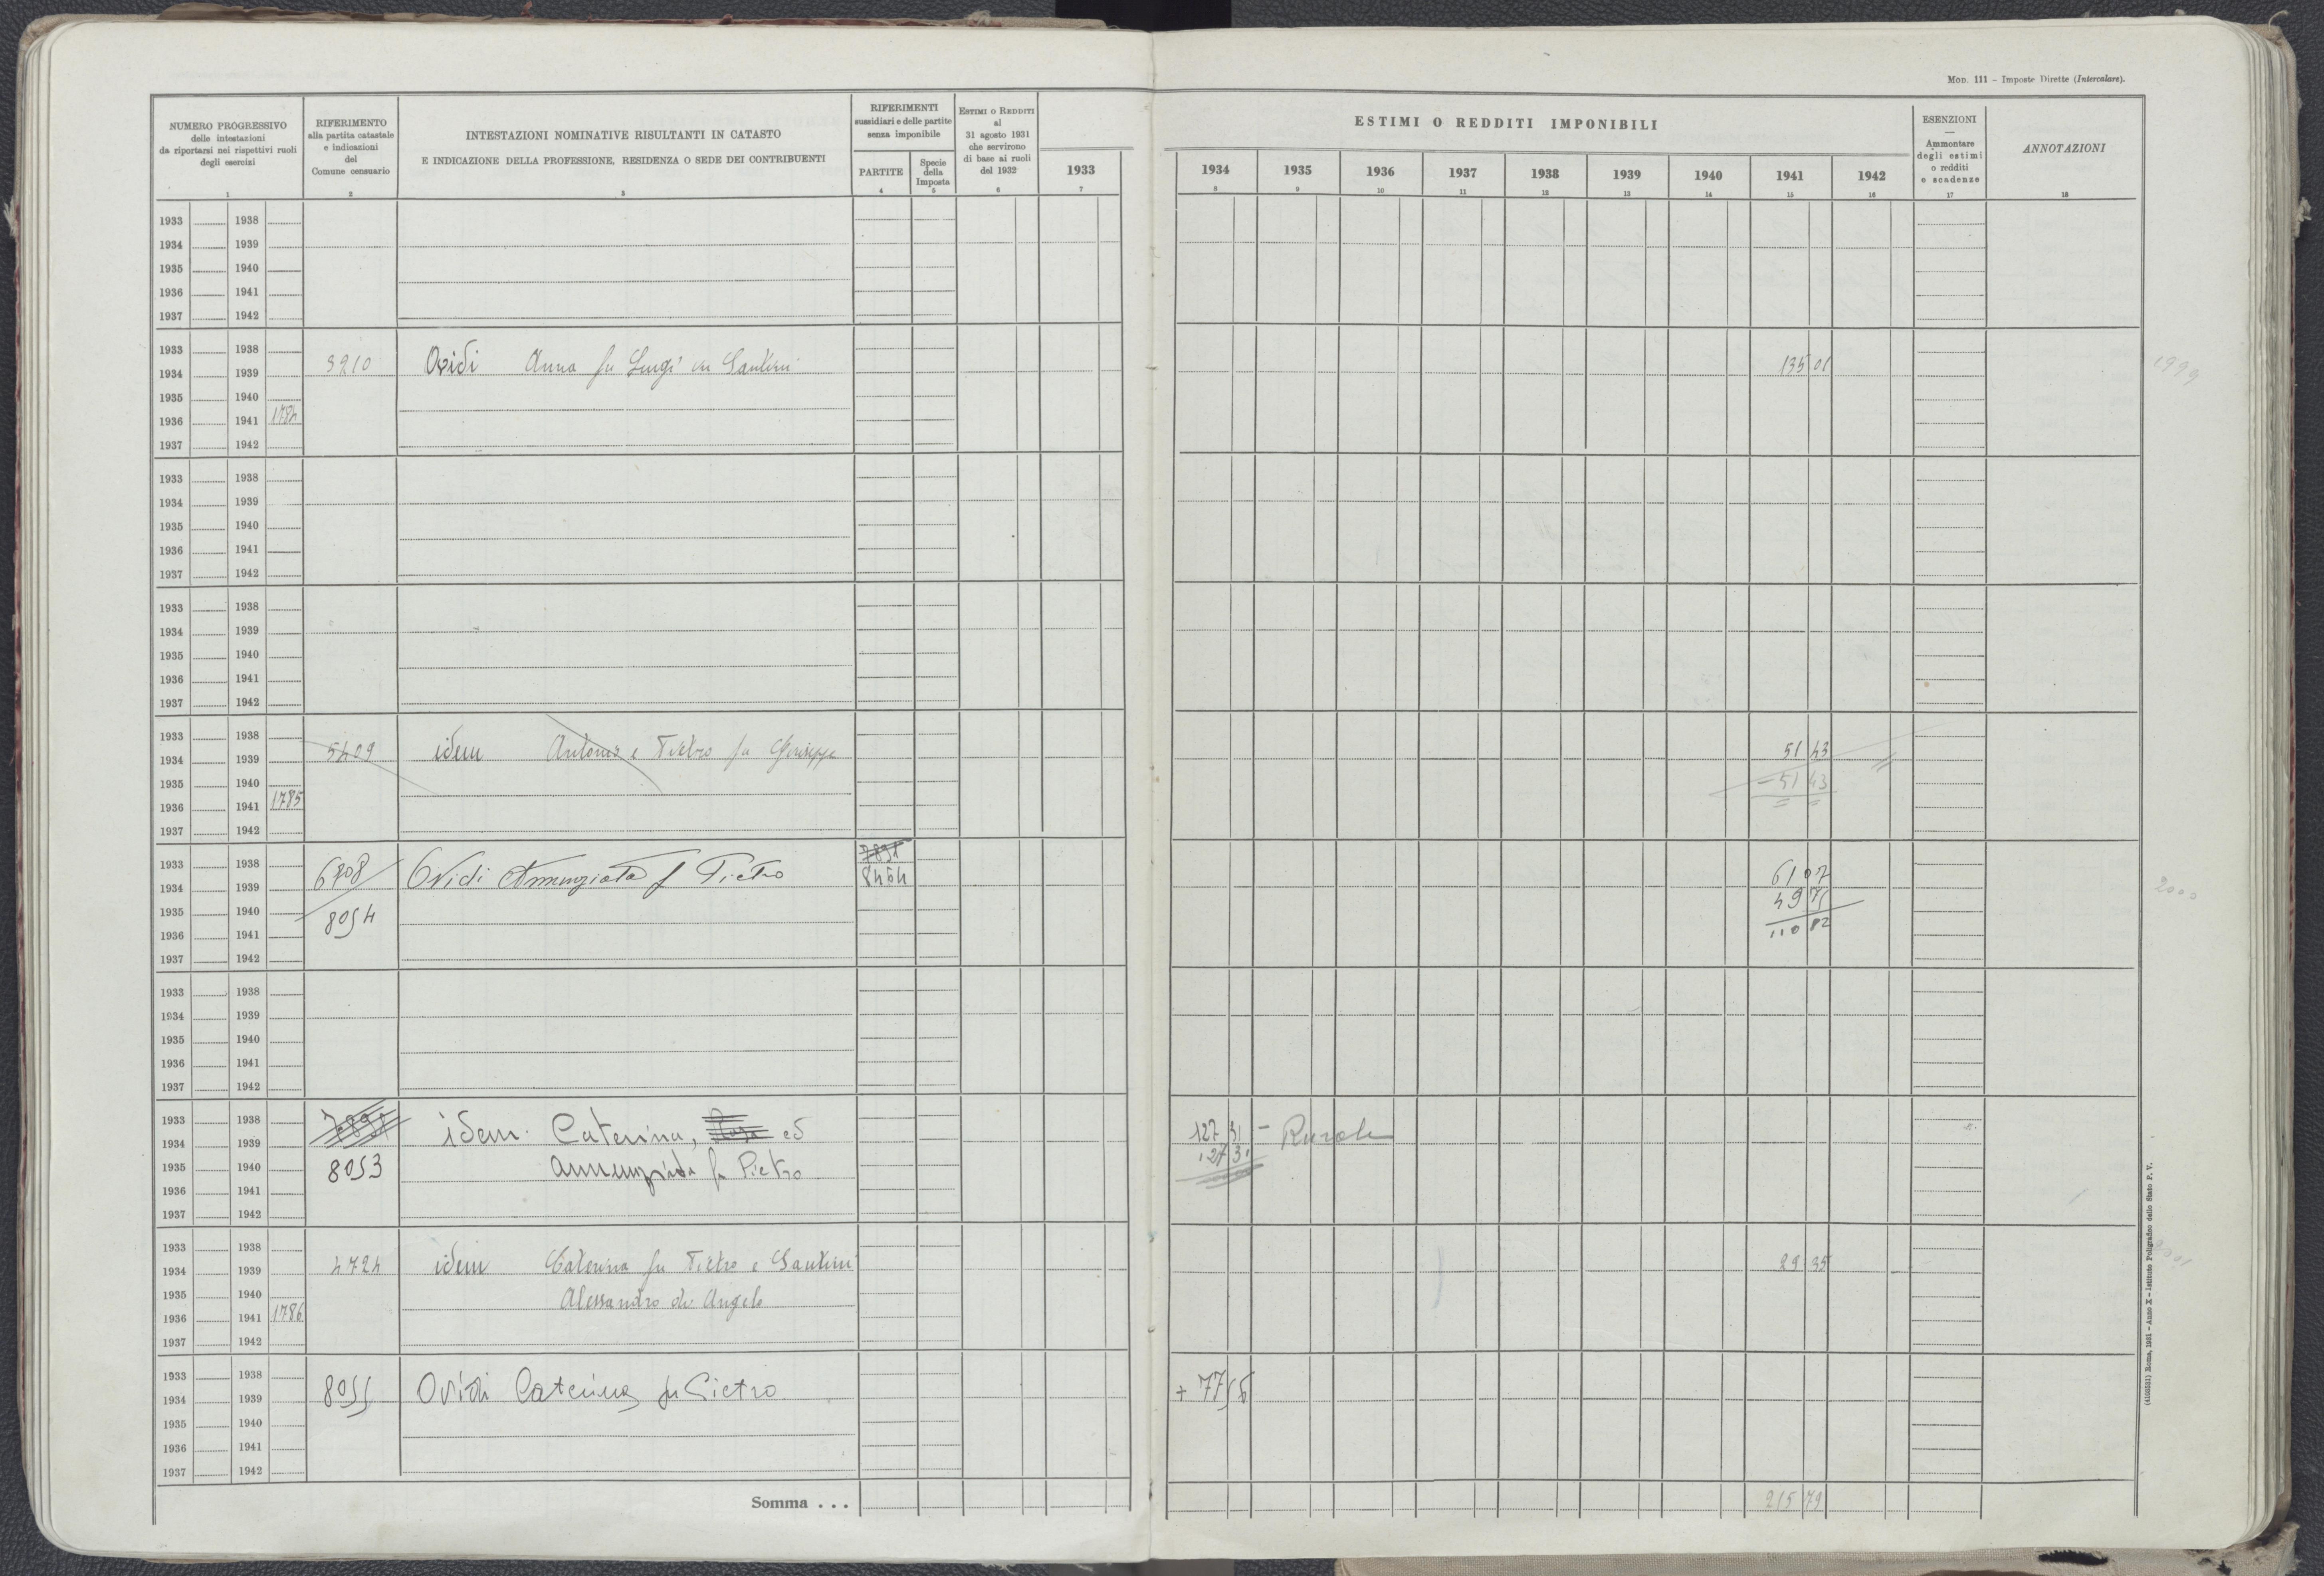 MOD. 111 – Imposte Dirette (Intercalare).
NUMERO PROGRESSIVO
delle intestazioni
da riportarsi nei rispettivi ruoli
degli esercizi
1
RIFERIMENTO
alla partita catastale
e indicazioni
del
Comune censuario
2
INTESTAZIONI NOMINATIVE RISULTANTI IN CATASTO
E INDICAZIONE DELLA PROFESSIONE, RESIDENZA O SEDE DEI CONTRIBUENTI
3
RIFERIMENTI
sussidiari e delle partite
senza imponibile
PARTITE
4
Specie
della
Imposta
5
ESTIMI O REDDITI
al
31 agosto 1931
che servirono
di base ai ruoli
del 1932
6
1933
7
ESTIMI O REDDITI IMPONIBILI
1934 1935 1936 1937 1938 1939 1940 1941 1942
8 9 10 11 12 13 14 15 16
ESENZIONI
—
Ammontare
degli estimi
o redditi
e scadenze
17
ANNOTAZIONI
18
1933 1938
1934 1939
1935 1940
1936 1941
1937 1942
1933 1938
1934 1939 3210 Ovidi Anna fu Luigi in Santini 135 01 1999
1935 1940
1936 1941 1784
1937 1942
1933 1938
1934 1939
1935 1940
1936 1941
1937 1942
1933 1938
1934 1939
1935 1940
1936 1941
1937 1942
1933 1938
1934 1939 5409 idem Antonio e Pietro fu Giuseppe 51 43
1935 1940 – 51 43
1936 1941 1785
1937 1942
1933 1938 7891
1934 1939 6808 Ovidi Annunziata f Pietro 8454 61 07 2000
1935 1940 8054 49 75
1936 1941 110 82
1937 1942
1933 1938
1934 1939
1935 1940
1936 1941
1937 1942
1933 1938 7891
1934 1939 idem Caterina, Rosa ed 127 31 – Rurale
1935 1940 8053 Annunziata fu Pietro 127 31
1936 1941
1937 1942
1933 1938
1934 1939 4724 idem Caterina fu Pietro e Santini 29 35
1935 1940 Alessandro di Angelo
1936 1941 1786
1937 1942
1933 1938
1934 1939 8055 Ovidi Caterina fu Pietro + 77 56
1935 1940
1936 1941
1937 1942
Somma . . . 215 79
(4103531) Roma, 1931 – Anno X – Istituto Poligrafico dello Stato P. V.